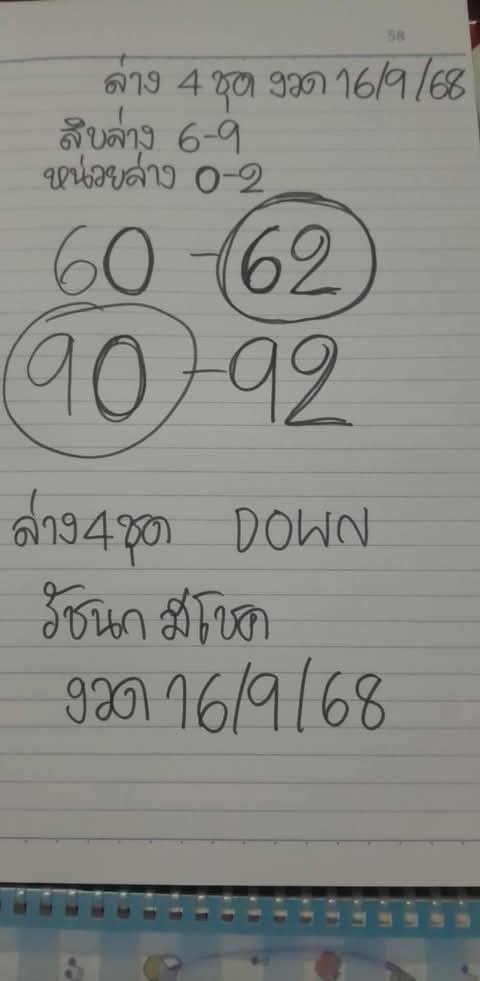 58
ล่าง 4 ชุด งวด 16/9/68
สิบล่าง 6-9
หน่วยล่าง 0-2
60-62
90-92
ล่าง 4 ชุด DOWN
รัชนก มีโชค
งวด 16/9/68